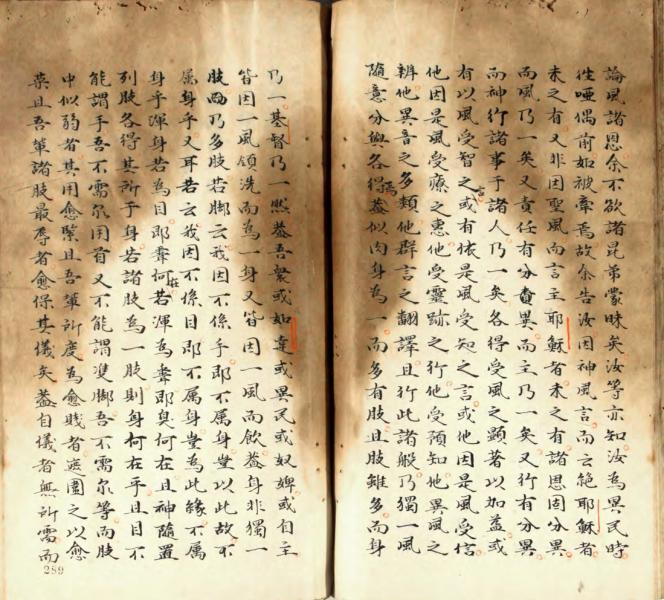 論風諸恩余不欲諸昆弟蒙昧矣汝等亦知汝為異民時
徃啞偶前如被牽焉故余告汝因神風言而云絕耶穌者
未之有又非因聖風而言主耶穌者未之有諸恩固分異
而風乃一矣又責任有分異而主乃一矣又行有分異
而神行諸事于諸人乃一矣各得受風之顯著以加益或
有以風受智之言或有依是風受知之言或他因是風受信
他因是風受療之惠他受靈跡之行他受預知他異風之
辨他異音之多類他群言之翻譯且行此諸般乃獨一風
隨意分與各得焉蓋似肉身為一而多有肢且肢雖多而身
乃一基督乃一然蓋吾眾或如達或異民或奴婢或自主
皆因一風領洗而為一身又皆因一風而飲蓋身非獨一
肢而乃多肢若脚云我因不係手即不属身豈以此故不
属身乎又耳若云我因不係目即不属身豈為此緣不属
身乎渾身若為目即聽何在若渾為聽即臭何在且神隨置
列肢各得其所于身若諸肢為一肢則身何在乎且目不
能謂手吾不需尔用首又不能謂雙脚吾不需尔等而肢
中似弱者其用愈緊且吾軰所度為愈賎者遮圍之以愈
菜且吾軰諸肢最辱者愈保其儀矣蓋自儀者無所需而
289